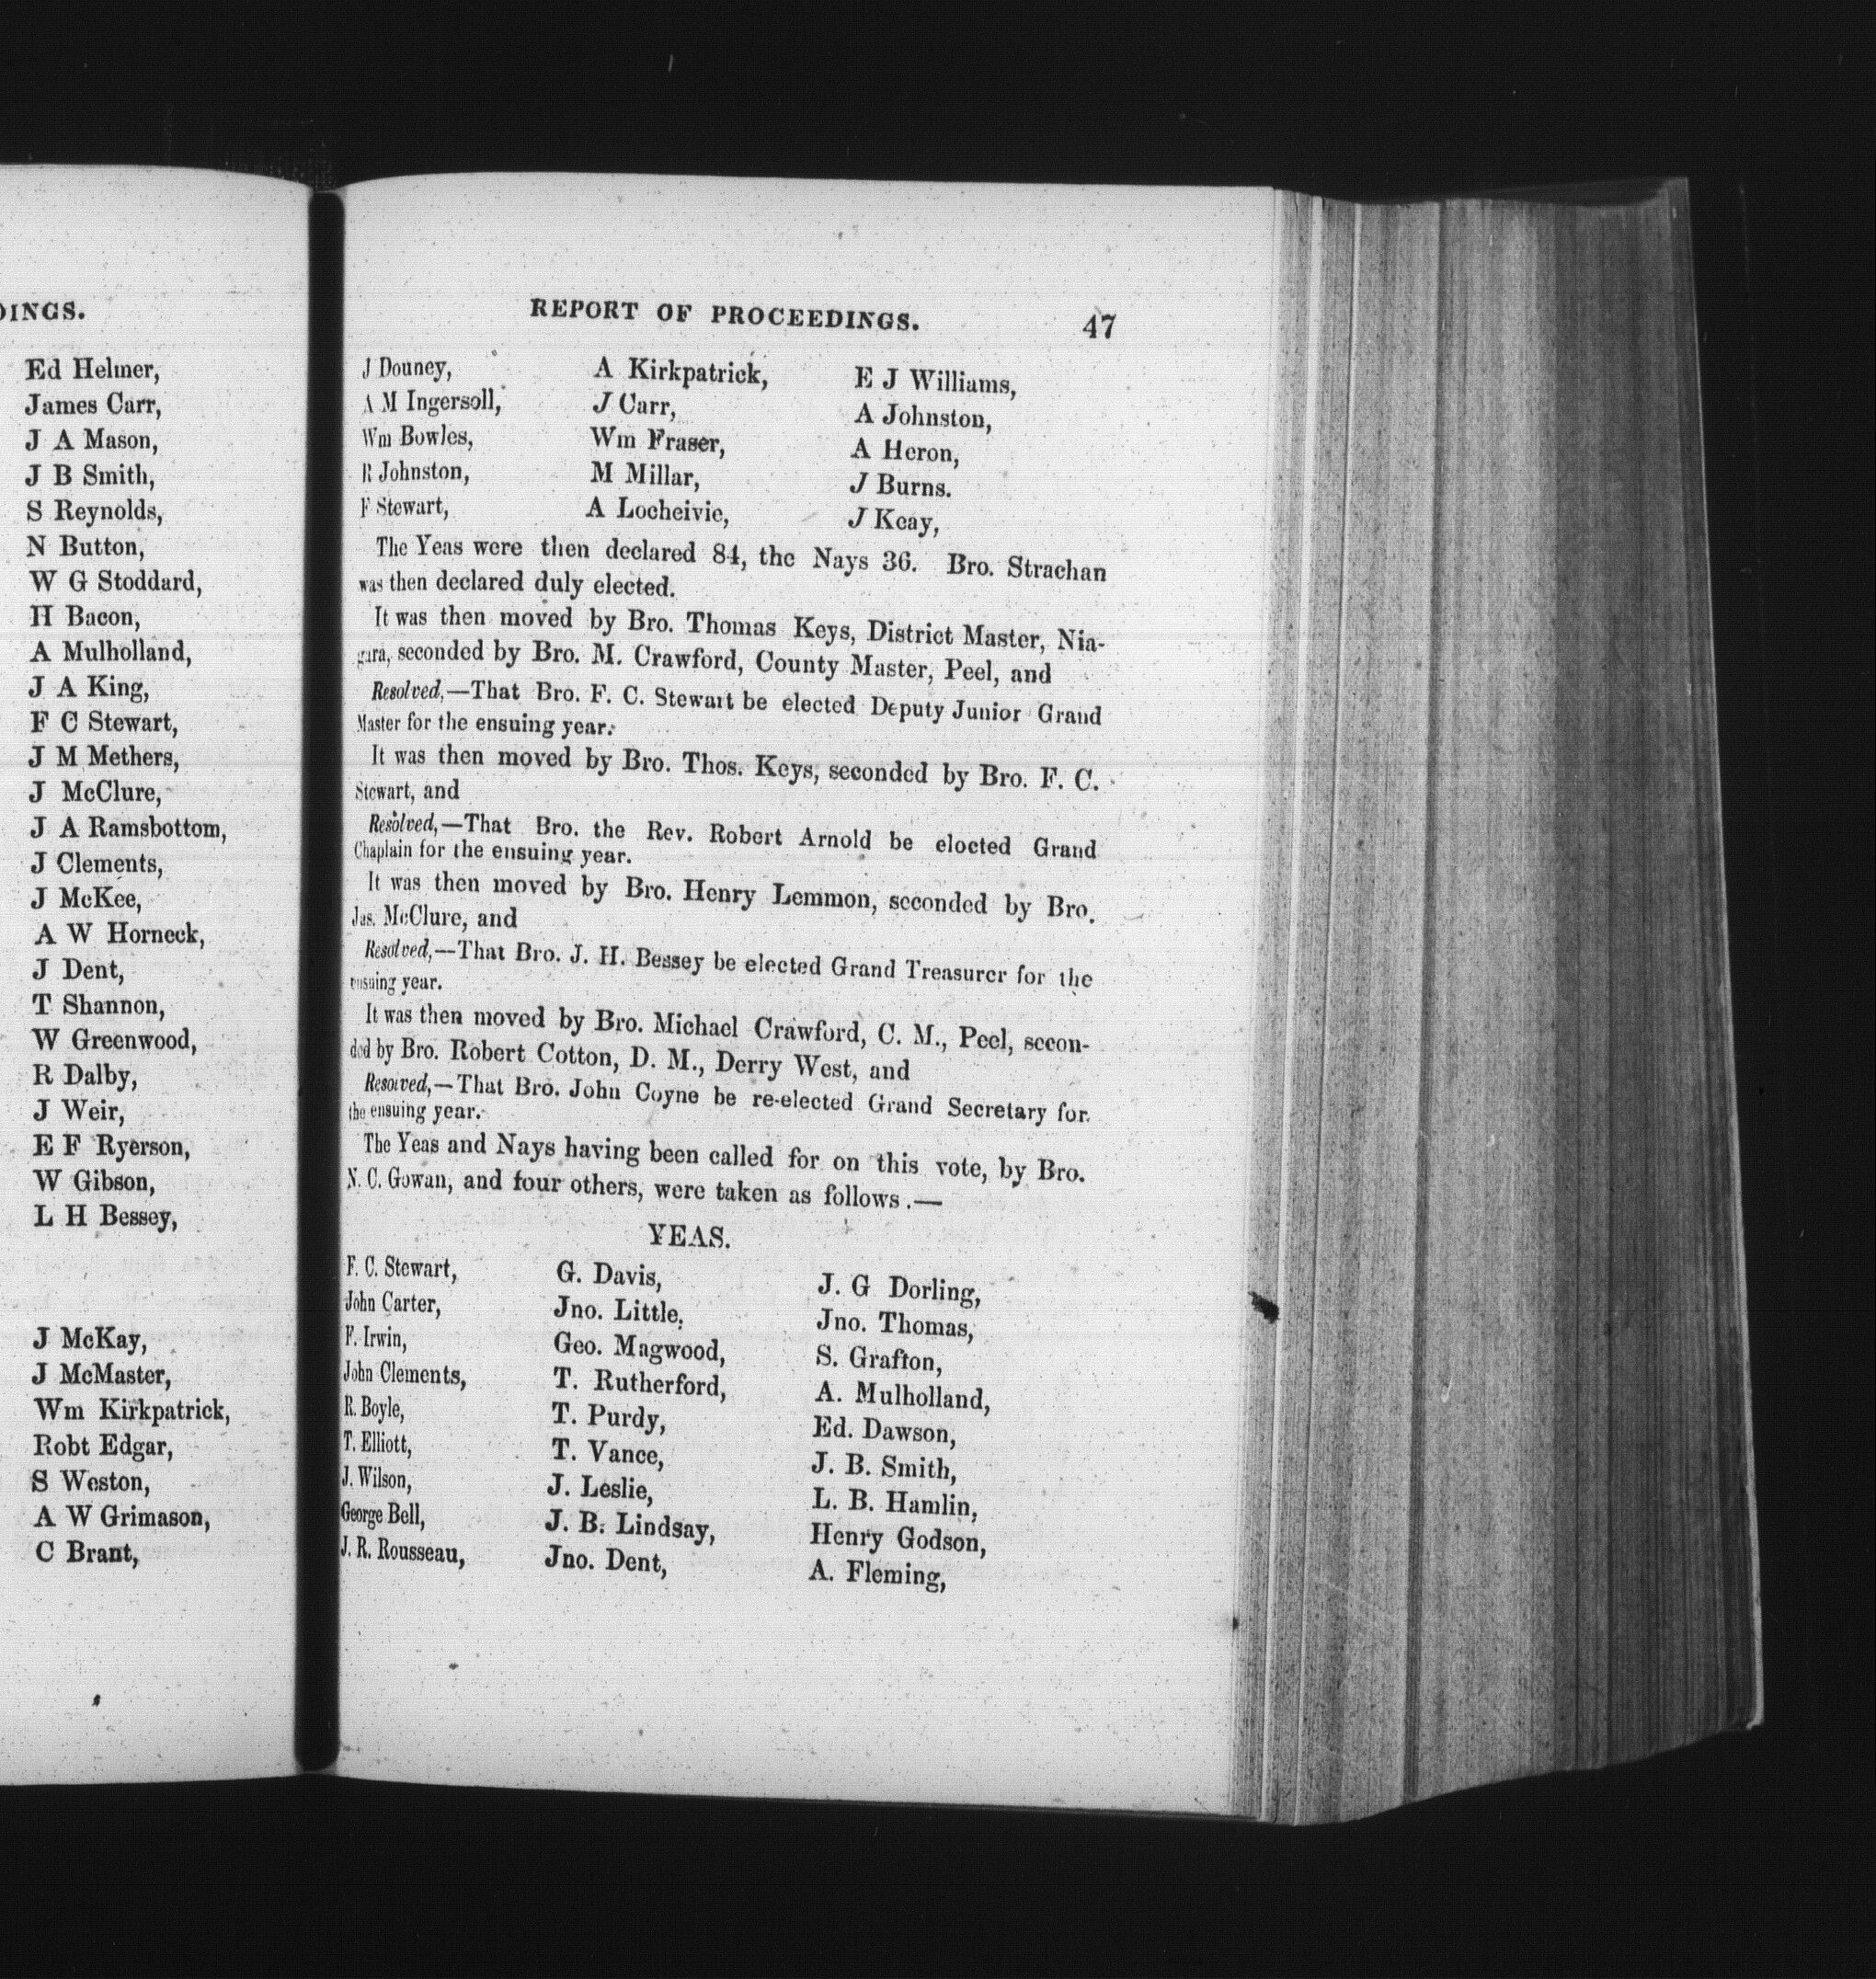 DINGS.
Ed Helmer,
James Carr,
J A Mason,
J B Smith,
S Reynolds,
N Button,
W G Stoddard,
H Bacon,
A Mulholland,
J A King,
F C Stewart,
J M Methers,
J McClure,
J A Ramsbottom,
J Clements,
J McKee,
A W Horneck,
J Dent,
T Shannon,
W Greenwood,
R Dalby,
J Weir,
E F Ryerson,
W Gibson,
L H Bessey,
J McKay,
J McMaster,
Wm Kirkpatrick,
Robt Edgar,
S Weston,
A W Grimason,
C Brant,
REPORT OF PROCEEDINGS. 47
J Douney, A Kirkpatrick, E J Williams,
A M Ingersoll, J Carr, A Johnston,
Wm Bowles, Wm Fraser, A Heron,
R Johnston, M Millar, J Burns.
F Stewart, A Locheivie, J Keay,
The Yeas were then declared 84, the Nays 36. Bro. Strachan
was then declared duly elected.
It was then moved by Bro. Thomas Keys, District Master, Nia-
gara, seconded by Bro. M. Crawford, County Master, Peel, and
Resolved,—That Bro. F. C. Stewart be elected Deputy Junior Grand
Master for the ensuing year.
It was then moved by Bro. Thos. Keys, seconded by Bro. F. C.
Stewart, and
Resolved,—That Bro. the Rev. Robert Arnold be elocted Grand
Chaplain for the ensuing year.
It was then moved by Bro. Henry Lemmon, seconded by Bro.
Jas. McClure, and
Resolved,—That Bro. J. H. Bessey be elected Grand Treasurer for the
ensuing year.
It was then moved by Bro. Michael Crawford, C. M., Peel, secon-
ded by Bro. Robert Cotton, D. M., Derry West, and
Resolved,—That Bro. John Coyne be re-elected Grand Secretary for
the ensuing year.
The Yeas and Nays having been called for on this vote, by Bro.
N. C. Gowan, and four others, were taken as follows.—
YEAS.
F. C. Stewart, G. Davis, J. G Dorling,
John Carter, Jno. Little, Jno. Thomas,
F. Irwin, Geo. Magwood, S. Grafton,
John Clements, T. Rutherford, A. Mulholland,
R. Boyle, T. Purdy, Ed. Dawson,
T. Elliott, T. Vance, J. B. Smith,
J. Wilson, J. Leslie, L. B. Hamlin,
George Bell, J. B. Lindsay, Henry Godson,
J. R. Rousseau, Jno. Dent, A. Fleming,